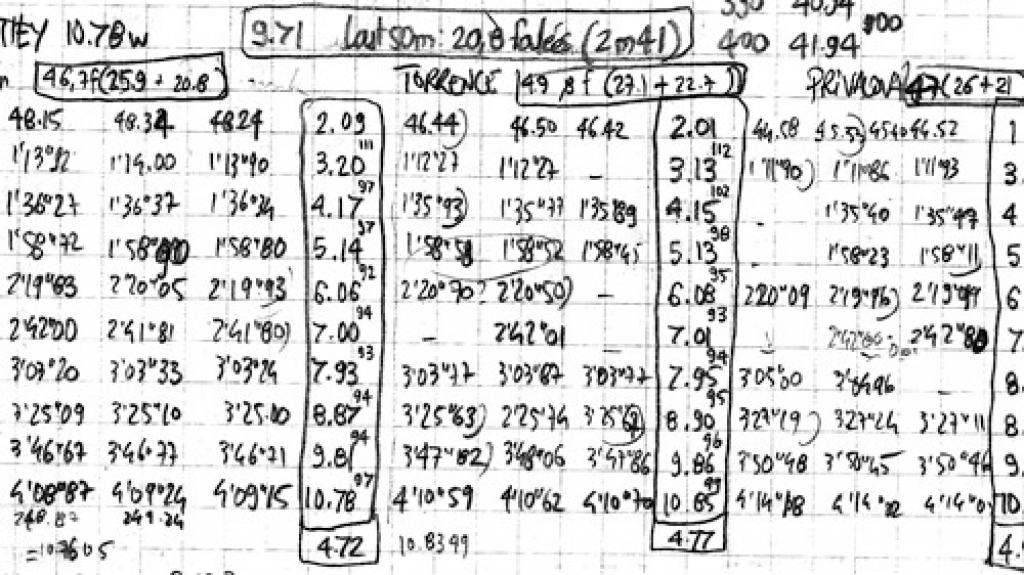 330 40.94
TTEY 10.78w 9.71 last 50m: 20,8 foulées (2m41) 400 41.94
46,7f (25.9 + 20.8) TORRENCE 49,8f (27.1 + 22.7) PRIVALOVA 47 (26 + 21
48.15 48.34 48.24 2.09 46.44) 46.50 46.42 2.01 44.58 44.52 1
1'13"92 1'14.00 1'13"90 3.20 111 1'12"27 1'12"27 – 3.13 112 1'11"90) 1'11"86 1'11"93 3.
1'36"27 1'36"37 1'36"34 4.17 97 1'35"93) 1'35"77 1'35"89 4.15 102 - 1'35"40 1'35"47 4
1'58"72 1'58"80 5.14 97 1'58"58 1'58"52 1'58"45 5.13 98 - 1'58"23 1'58"11) 5
2'19"83 2'20"05 2'19"93 6.06 92 2'20"70? 2'20"50) – 6.08 95 2'20"09 2'19"96) 2'19"99 6
2'42"00 2'41"81 2'41"80) 7.00 94 – 2'42"01 – 7.01 93 2'42"80 7.
3'03"20 3'03"33 3'03"24 7.93 93 3'03"77 3'03"87 3'03"77 7.95 94 3'05"00 - 8.
3'25"09 3'25"10 3'25.10 8.87 94 3'25"63) 2'25"74 3'25"62) 8.90 95 3'27"19) 3'27"24 3'27"11 8.
3'46"67 3'46"77 3'46"71 9.81 94 3'47"82) 3'48"06 3'47"86 9.86 96 3'50"48 3'50"45 3'50"46 9.
4'08"87 4'09"24 4'09"15 10.78 97 4'10"59 4'10"62 4'10"70 10.85 99 10.
248.87 249.24
4.72 10.8349 4.77 4.